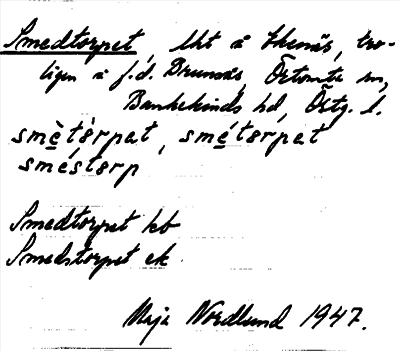 Smedtorpet, lht å Ekenäs, tro-
ligen å f.d. Brunnäs, Örtomta sn,
Bankekinds hd, Östg. l.
smètårpat, smétårpat
eméstorp
Smedtorpet kb
Smedstorpet ek
Maja Nordlund 1947.